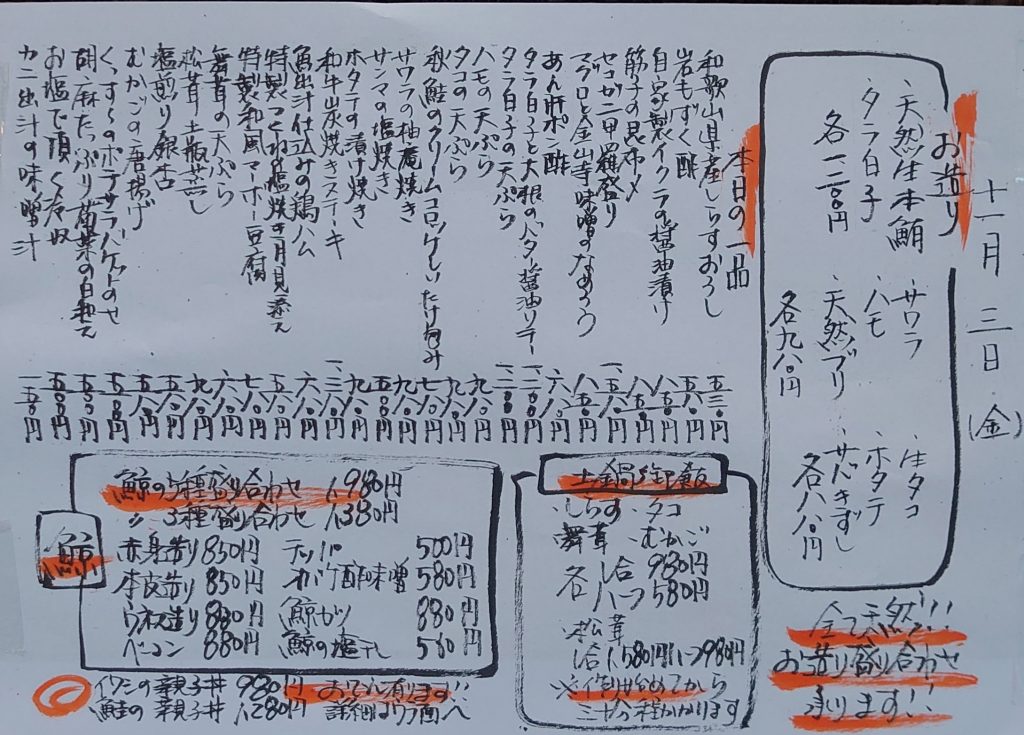 十一月三日(金)
お造り
・天然生本鮪
・タラ白子
各一二八〇円
・サワラ
・ハモ
・天然ブリ
各九八〇円
・生タコ
・ホタテ
・サバきずし
各八八〇円
全て天然!!!
お造り盛り合わせ
承ります!!
本日の一品
和歌山県産しらすおろし 五三〇円
岩もずく酢 五六〇円
自家製イクラの醤油漬け 八五〇円
筋子の昆布〆 八五〇円
セコガニ甲羅盛り 一、五八〇円
マグロと金山寺味噌のなめろう 八五〇円
あん肝ポン酢 六八〇円
タラ白子と大根のバター醤油ソテー 一、二〇〇円
タラ白子の天ぷら 一、二〇〇円
ハモの天ぷら 九八〇円
タコの天ぷら 九八〇円
秋鮭のクリームコロッケしいたけ包み 七八〇円
サワラの柚庵焼き 九八〇円
サンマの塩焼き 五八〇円
ホタテの漬け焼き 九八〇円
和牛炭焼きステーキ 一、三八〇円
魚出汁仕込みの鶏ハム 六八〇円
特製つくね塩焼き月見添え 五八〇円
特製和風マーボー豆腐 七八〇円
舞茸の天ぷら 六八〇円
松茸土瓶蒸し 九八〇円
塩煎り銀杏 五八〇円
むかごの唐揚げ 五八〇円
くっす〜のポテサラバゲットのせ 五五〇円
胡麻たっぷり菊菜の白和え 五五〇円
お塩で頂く冷奴 五五〇円
カニ出汁の味噌汁 一五〇円
鯨
鯨の5種盛り合わせ 1,980円
〃 3種盛り合わせ 1,380円
赤身造り 850円
本皮造り 850円
ウネス造り 880円
ベーコン 880円
テッパ 500円
オバケ酢味噌 580円
鯨カツ 880円
鯨の塩干し 560円
土鍋ご飯
・しらす ・タコ
・舞茸 ・むかご
各 1合 980円
各 ハーフ 580円
・松茸
1合1,580円ハーフ980円
※作り始めてから
三十分程かかります
イワシの親子丼 980円
鮭の親子丼 1,280円
おでん有ります!!